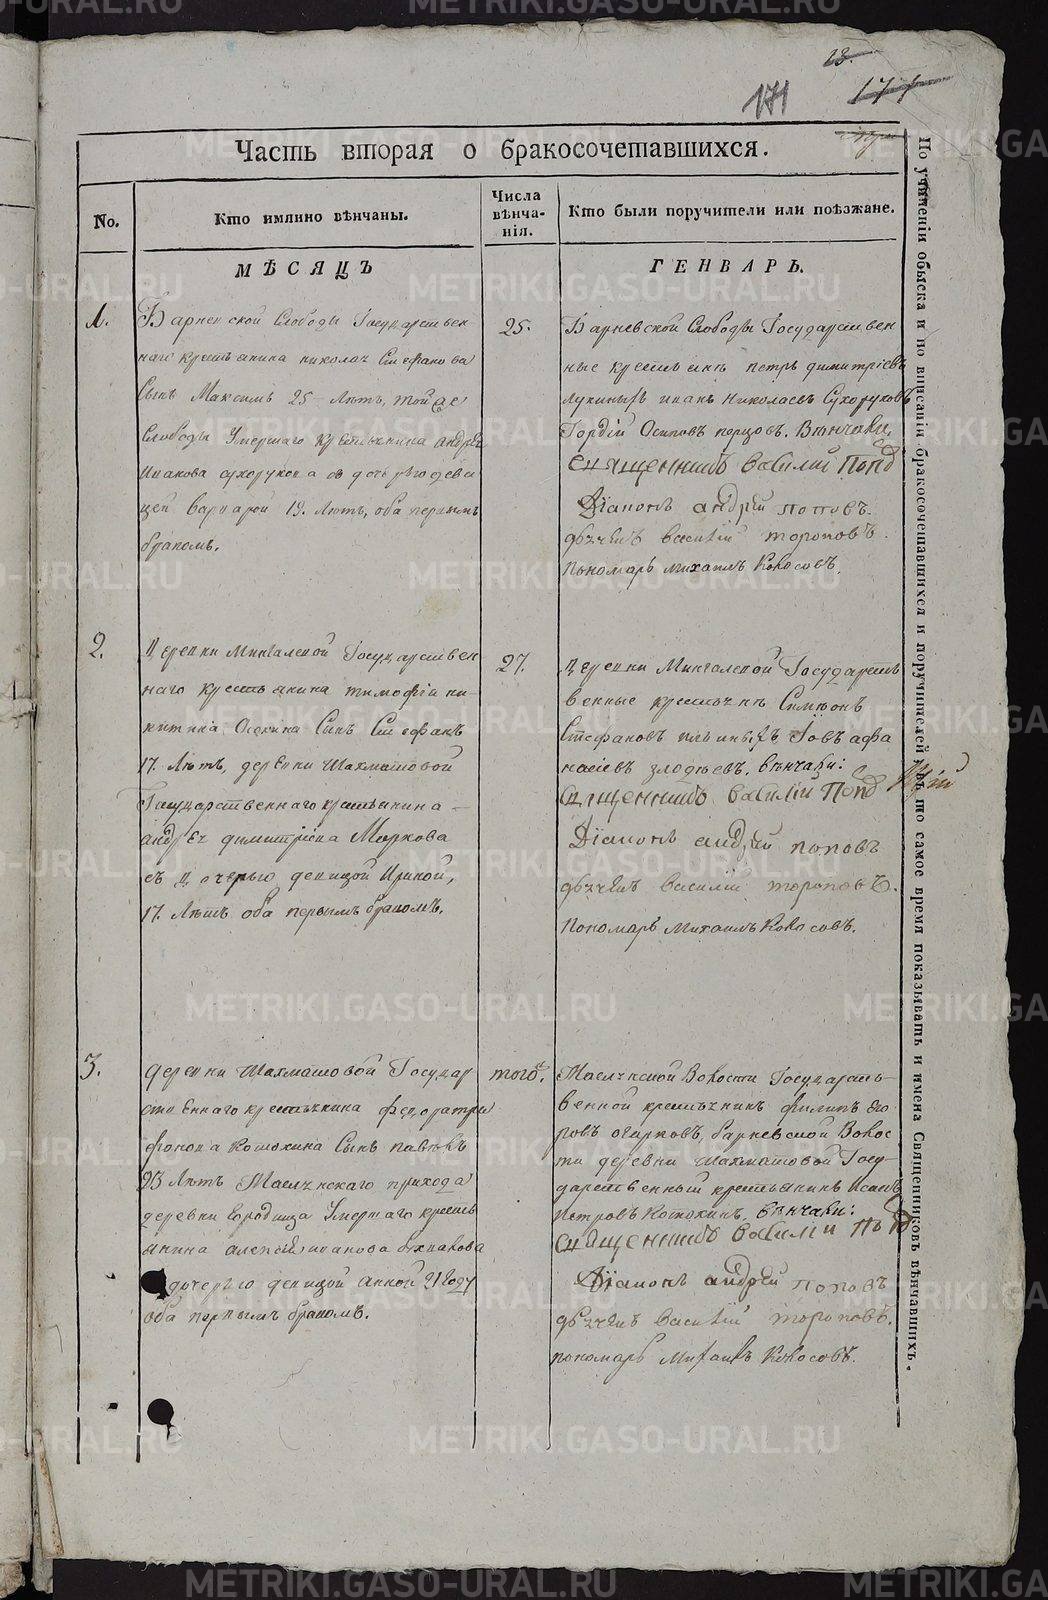 23.
171
171
Часть вторая о бракосочетавшихся.
No.
Кто имянно вѣнчаны.
Числа вѣнча-нія.
Кто были поручители или поѣзжане.
МѢСЯЦЪ
ГЕНВАРЬ.
1.
Барневской Слободы Государствен
наго крестьянина николая Стефанова
Сынъ Максимъ 25 Лѣтъ, той же
Слободы Умершаго крестьянина андрея
иванова сухорукова з дочерью деви
цей варварой 19. Лѣтъ, оба первымъ
бракомъ.
25.
Барневской Слободы Государствен
ные крестьяне петръ димитріевъ
лукиныхъ иванъ николаевъ Сухоруковъ
Гордѣй Осиповъ перцовъ. Вѣнчали
священникъ василий Поповъ
Діаконъ андрей поповъ.
дьячекъ василій тороповъ.
пономарь михаилъ Кокосовъ.
2.
Деревни Мингалевой Государствен
наго крестьянина тимофея ни-
китина Сынъ Стефанъ
17. Лѣтъ, деревни Шахматовой
Государственнаго крестьянина
андрея димитріева Маркова
съ дочерью девицой Ириной,
17. Лѣтъ оба первымъ бракомъ.
27.
Деревни Мингалевой Государст
венные крестьяне Симеонъ
Стефановъ Іовъ афа
насіевъ злодѣевъ. вѣнчали:
священникъ василій Попов
Діаконъ андрей поповъ
дьячекъ василій тороповъ.
пономарь михаилъ Кокосовъ.
3.
деревни Шахматовой Государ
ственнаго крестьянина федора
Котюхина Сынъ павелъ
23 Лѣтъ Маслянскаго прихода
деревни Городища Умершаго кресть
янина алексея иванова
дочерью девицой анной 21 году
оба первымъ бракомъ.
того ж.
Маслянской Волости Государст-
венной крестьянинъ филипъ его
ровъ огарковъ, барневской Волос
ти деревни Шахматовой Госу-
дарственный крестьянинъ
петровъ Котюхинъ. вѣнчали:
священникъ василий Попов
Діаконъ андрей поповъ
дьячекъ василій тороповъ.
пономарь Михаилъ Кокосовъ.
По учиненіи обыска и по вписаніи бракосочетавшихся и поручителей въ то самое время показывать и имена Священниковъ вѣнчавшихъ.
METRIKI.GASO-URAL.RU